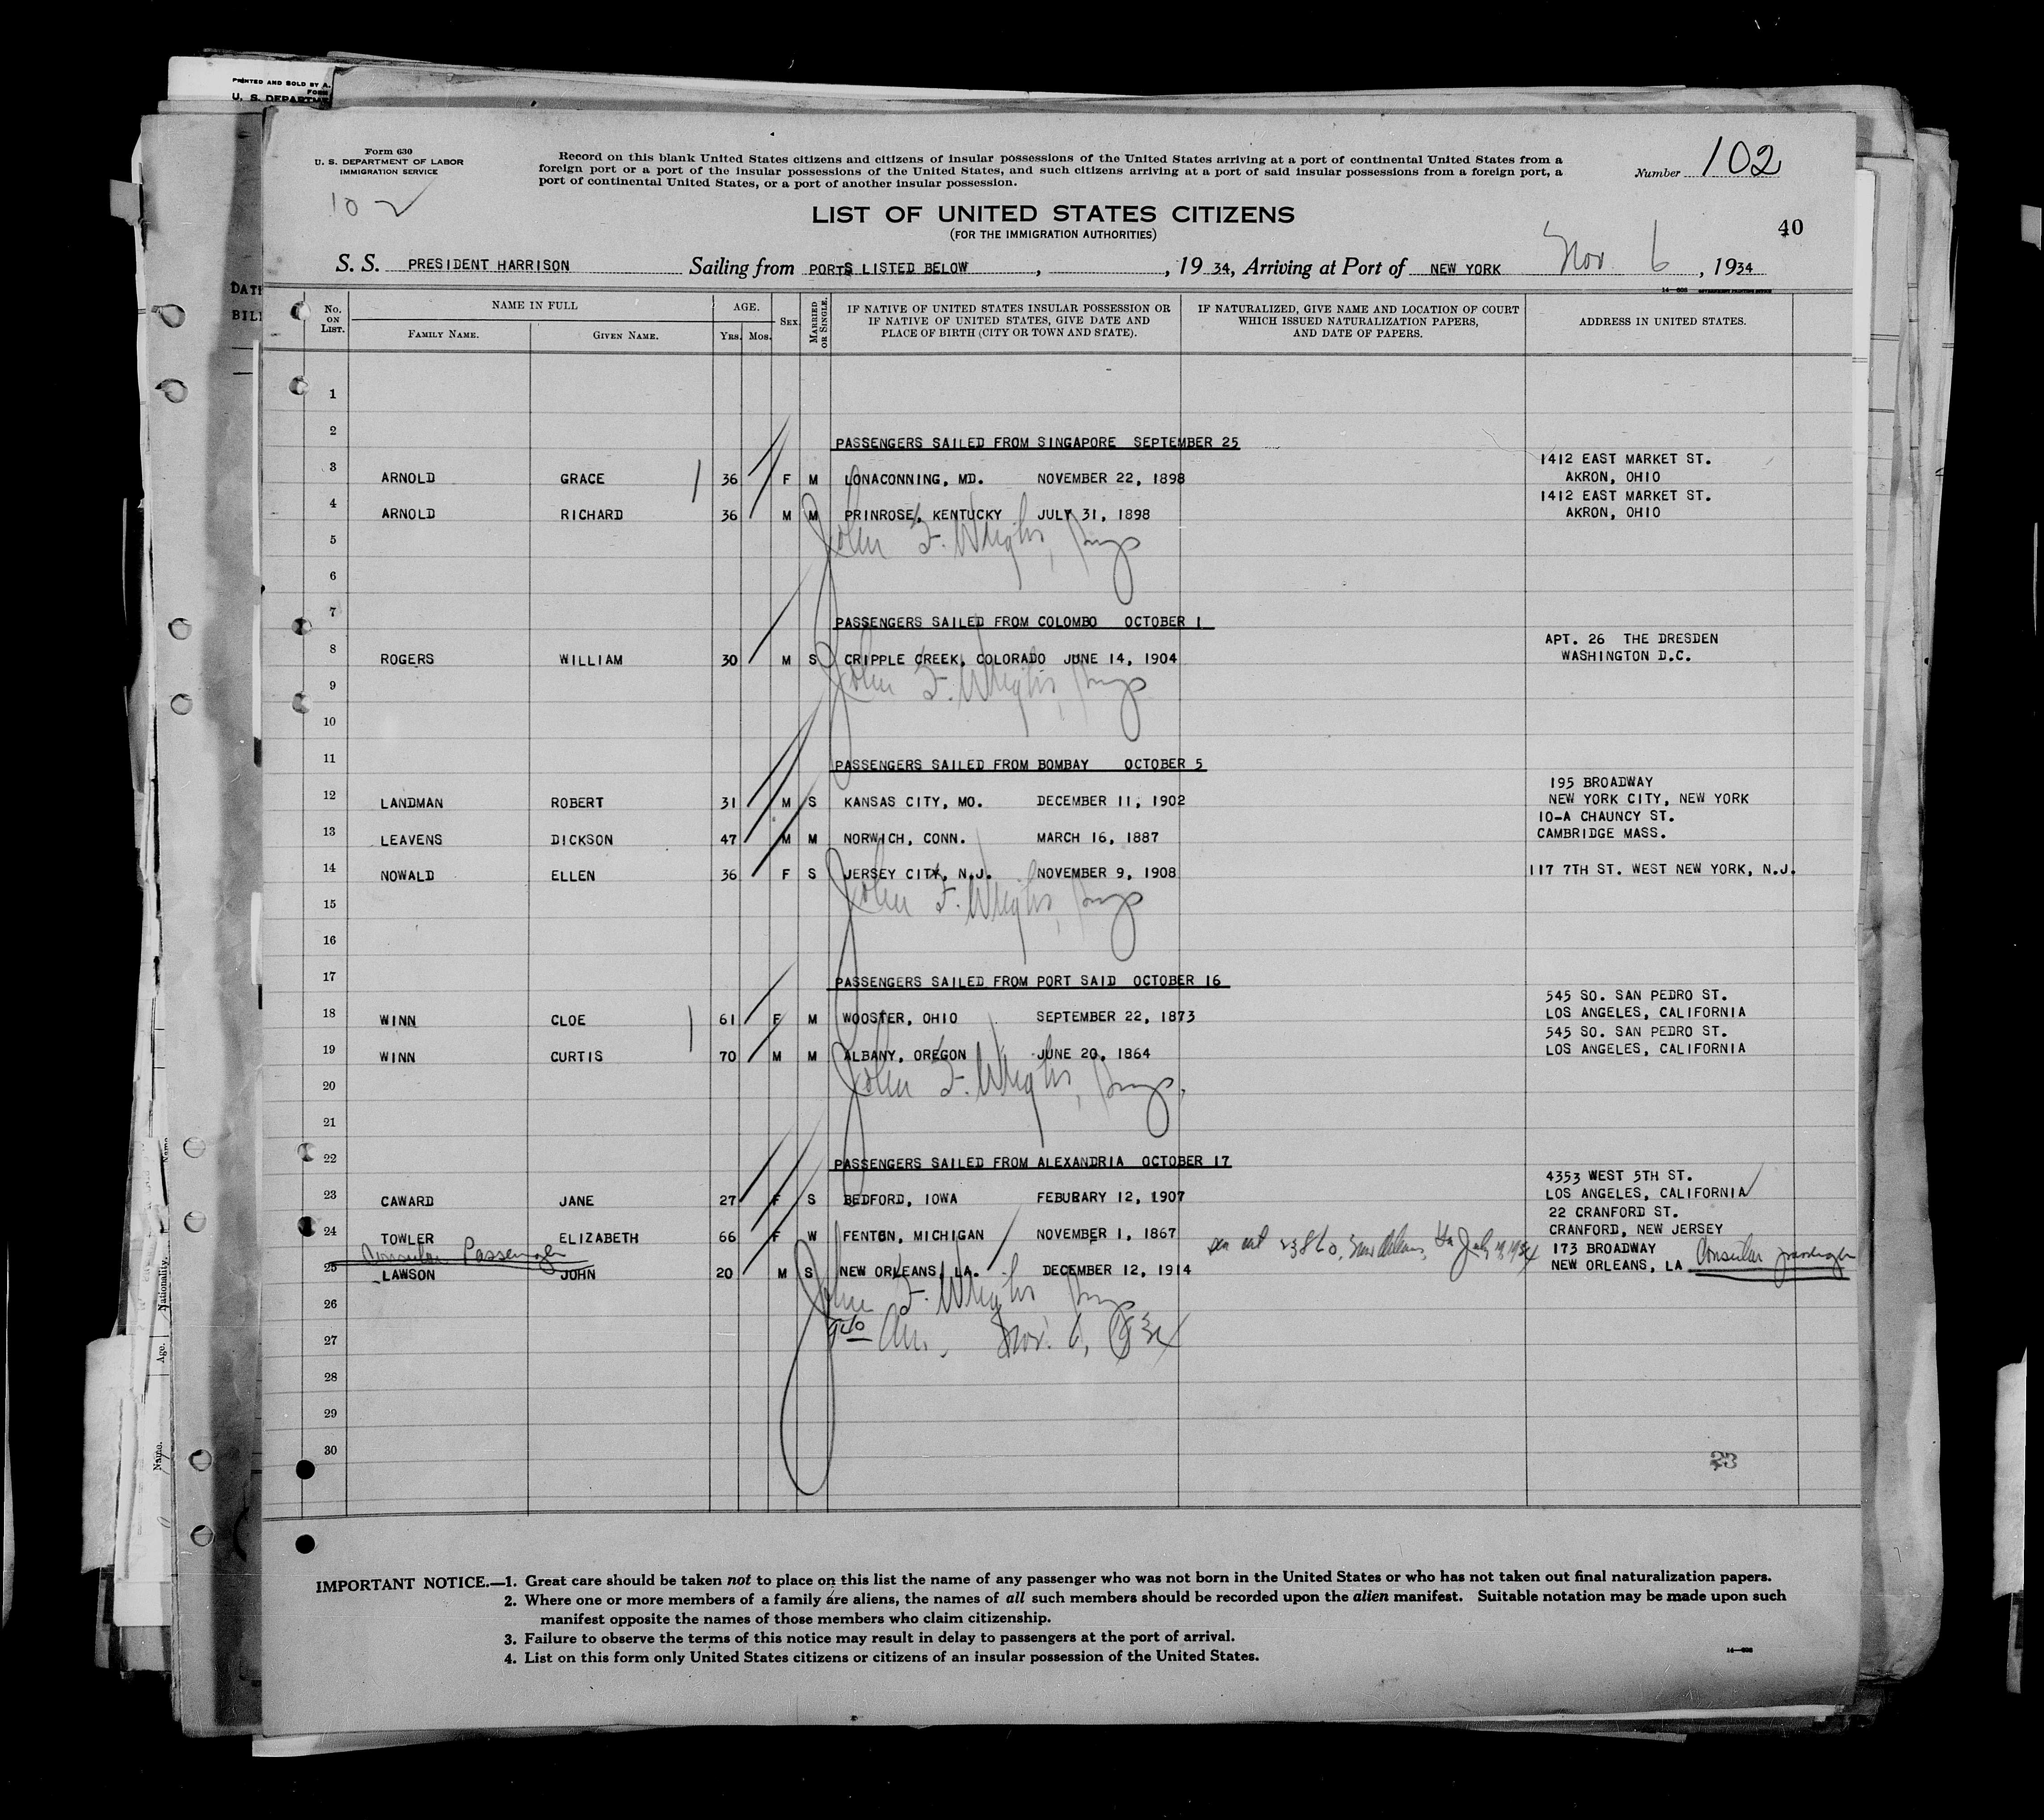 PRINTED AND SOLD BY A.
FORM
U. S. DEPARTME
DATE
BILL
Form 630
U. S. DEPARTMENT OF LABOR
IMMIGRATION SERVICE
102
Record on this blank United States citizens and citizens of insular possessions of the United States arriving at a port of continental United States from a
foreign port or a port of the insular possessions of the United States, and such citizens arriving at a port of said insular possessions from a foreign port, a
port of continental United States, or a port of another insular possession.
Number 102
LIST OF UNITED STATES CITIZENS
(FOR THE IMMIGRATION AUTHORITIES)
40
S. S. PRESIDENT HARRISON Sailing from PORTS LISTED BELOW , , 19 34, Arriving at Port of NEW YORK Nov 6 , 1934
No. ON LIST. NAME IN FULL FAMILY NAME. GIVEN NAME. AGE. YRS. MOS. SEX. MARRIED OR SINGLE. IF NATIVE OF UNITED STATES INSULAR POSSESSION OR IF NATIVE OF UNITED STATES, GIVE DATE AND PLACE OF BIRTH (CITY OR TOWN AND STATE). IF NATURALIZED, GIVE NAME AND LOCATION OF COURT WHICH ISSUED NATURALIZATION PAPERS, AND DATE OF PAPERS. ADDRESS IN UNITED STATES.
1
2 PASSENGERS SAILED FROM SINGAPORE SEPTEMBER 25
3 ARNOLD GRACE 36 F M LONACONNING, MD. NOVEMBER 22, 1898 1412 EAST MARKET ST. AKRON, OHIO
4 ARNOLD RICHARD 36 M M PRINROSE, KENTUCKY JULY 31, 1898 1412 EAST MARKET ST. AKRON, OHIO
5 John F. Wright, Insp
6
7 PASSENGERS SAILED FROM COLOMBO OCTOBER 1
8 ROGERS WILLIAM 30 M S CRIPPLE CREEK, COLORADO JUNE 14, 1904 APT. 26 THE DRESDEN WASHINGTON D.C.
9 John F. Wright, Insp
10
11 PASSENGERS SAILED FROM BOMBAY OCTOBER 5
12 LANDMAN ROBERT 31 M S KANSAS CITY, MO. DECEMBER 11, 1902 195 BROADWAY NEW YORK CITY, NEW YORK
13 LEAVENS DICKSON 47 M M NORWICH, CONN. MARCH 16, 1887 10-A CHAUNCY ST. CAMBRIDGE MASS.
14 NOWALD ELLEN 36 F S JERSEY CITY, N.J. NOVEMBER 9, 1908 117 7TH ST. WEST NEW YORK, N.J.
15 John F. Wright, Insp
16
17 PASSENGERS SAILED FROM PORT SAID OCTOBER 16
18 WINN CLOE 61 F M WOOSTER, OHIO SEPTEMBER 22, 1873 545 SO. SAN PEDRO ST. LOS ANGELES, CALIFORNIA
19 WINN CURTIS 70 M M ALBANY, OREGON JUNE 20, 1864 545 SO. SAN PEDRO ST. LOS ANGELES, CALIFORNIA
20 John F. Wright, Insp.
21
22 PASSENGERS SAILED FROM ALEXANDRIA OCTOBER 17
23 CAWARD JANE 27 F S BEDFORD, IOWA FEBURARY 12, 1907 4353 WEST 5TH ST. LOS ANGELES, CALIFORNIA
24 TOWLER ELIZABETH 66 F W FENTON, MICHIGAN NOVEMBER 1, 1867 22 CRANFORD ST. CRANFORD, NEW JERSEY
Consular Passenger
25 LAWSON JOHN 20 M S NEW ORLEANS, LA. DECEMBER 12, 1914 New Orleans, La July 173 BROADWAY NEW ORLEANS, LA Consular passenger
26 John F. Wright Insp
27 Nov. 6, 1934
28
29
30
23
IMPORTANT NOTICE.—1. Great care should be taken not to place on this list the name of any passenger who was not born in the United States or who has not taken out final naturalization papers.
2. Where one or more members of a family are aliens, the names of all such members should be recorded upon the alien manifest. Suitable notation may be made upon such
manifest opposite the names of those members who claim citizenship.
3. Failure to observe the terms of this notice may result in delay to passengers at the port of arrival.
4. List on this form only United States citizens or citizens of an insular possession of the United States.